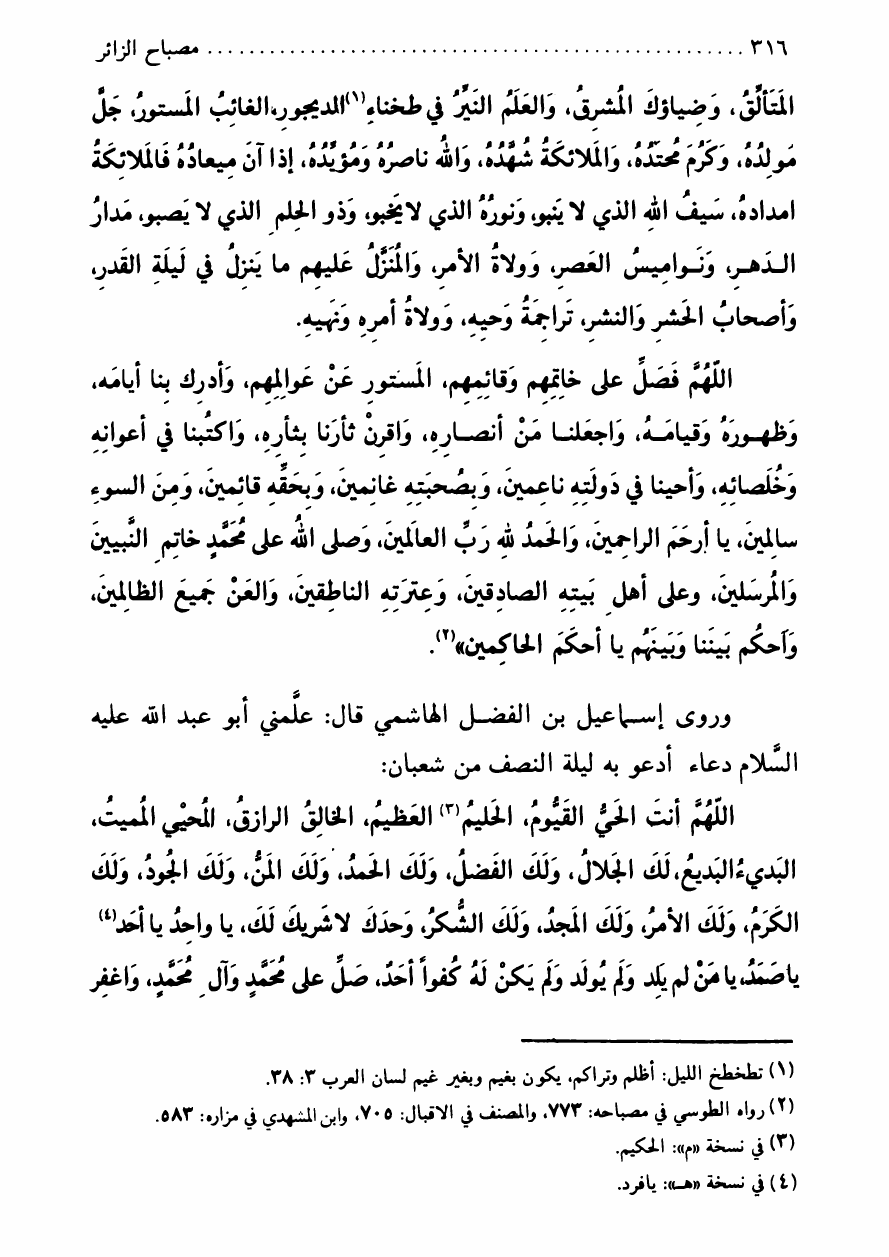 ٣١٦ ................................................ مصباح الزائر
المَتَأَلِّقُ، وَضِياؤكَ المُشرِقُ، وَالعَلَمُ النَيِّرُ في طخناءِ(١)الديجورِ،الغائبُ المَستورُ، جَلَّ
مَولِدُهُ، وَكَرُمَ مُحتَدُهُ، وَالمَلائكَةُ شُهَّدُهُ، وَاللهُ ناصرُهُ وَمُؤيِّدُهُ، إذا آنَ مِيعادُهُ فَالمَلائِكَةُ
امدادهُ، سَيفُ اللهِ الذي لا يَنبو، وَنورُهُ الذي لا يَخبو، وَذو الحِلمِ الذي لا يَصبو، مَدارُ
الـدَهـرِ، وَنَـوامِيسُ العَصرِ، وَولاةُ الأمرِ، وَالمُنَزَّلُ عَليهِم ما يَنزِلُ في لَيلَةِ القَدرِ،
وَأصحابُ الحَشرِ وَالنشرِ، تَراجِمَةُ وَحيِهِ، وَولاةُ أمرِهِ وَنَهيِهِ.
اللّهُمَّ فَصَلِّ على خاتِمِهِم وَقائِمِهِم، المَستورِ عَنْ عَوالِمِهِم، وَأدرِك بِنا أيامَه،
وَظهـورَهُ وَقيامَـهُ، وَاجعَلنـا مَنْ أنصـارِهِ، وَاقرِنْ ثأرَنا بِثأرِهِ، وَاكتُبنا في أعوانِهِ
وَخُلَصائِهِ، وَأحينا في دَولَتِهِ ناعِمينَ، وَبِصُحبَتِهِ غانِمينَ، وَبِحَقِّهِ قائِمينَ، وَمِنَ السوءِ
سالِمينَ، يا أرحَمَ الراحِمينَ، وَالحَمدُ للهِ رَبِّ العالَمينَ، وَصلى اللهُ على مُحَمَّدٍ خاتِمِ النَّبيينَ
وَالمُرسَلينَ، وعلى أهلِ بَيتِهِ الصادِقينَ، وَعِترَتِهِ الناطِقينَ، وَالعَنْ جَميعَ الظالِمينَ،
وَاَحكُم بَينَنا وَبَينَهُم يا أحكَمَ الحاكِمين»(٢).
وروى إسـماعيل بن الفضـل الهاشمي قال: علَّمني أبو عبد الله عليه
السَّلام دعاء أدعو به ليلة النصف من شعبان:
اللّهُمَّ أنتَ الحَيُّ القَيُّومُ، الحَليمُ(٣) العَظيمُ، الخالِقُ الرازِقُ، المُحيْي المُميتُ،
البَديءُ البَديعُ، لَكَ الجَلالُ، وَلَكَ الفَضلُ، وَلَكَ الحَمدُ، وَلَكَ المَنُّ، وَلَكَ الجُودُ، وَلَكَ
الكَرَمُ، وَلَكَ الأمرُ، وَلَكَ المَجدُ، وَلَكَ الشُكرُ، وَحدَكَ لا شَريكَ لَكَ، يا واحِدُ يا أحَد(٤)
يا صَمَدُ، يا مَنْ لم يَلِد وَلَم يُولَد وَلَم يَكنْ لَهُ كُفواً أحَدٌ، صَلِّ على مُحَمَّدٍ وَآلِ مُحَمَّدٍ، وَاغفِر
(١) تطخطخ الليل: أظلم وتراكم، يكون بغيم وبغير غيم لسان العرب ٣: ٣٨.
(٢) رواه الطوسي في مصباحه: ٧٧٣، والمصنف في الاقبال: ٧٠٥، وابن المشهدي في مزاره: ٥٨٣.
(٣) في نسخة «م»: الحكيم.
(٤) في نسخة «هـ»: يافرد.